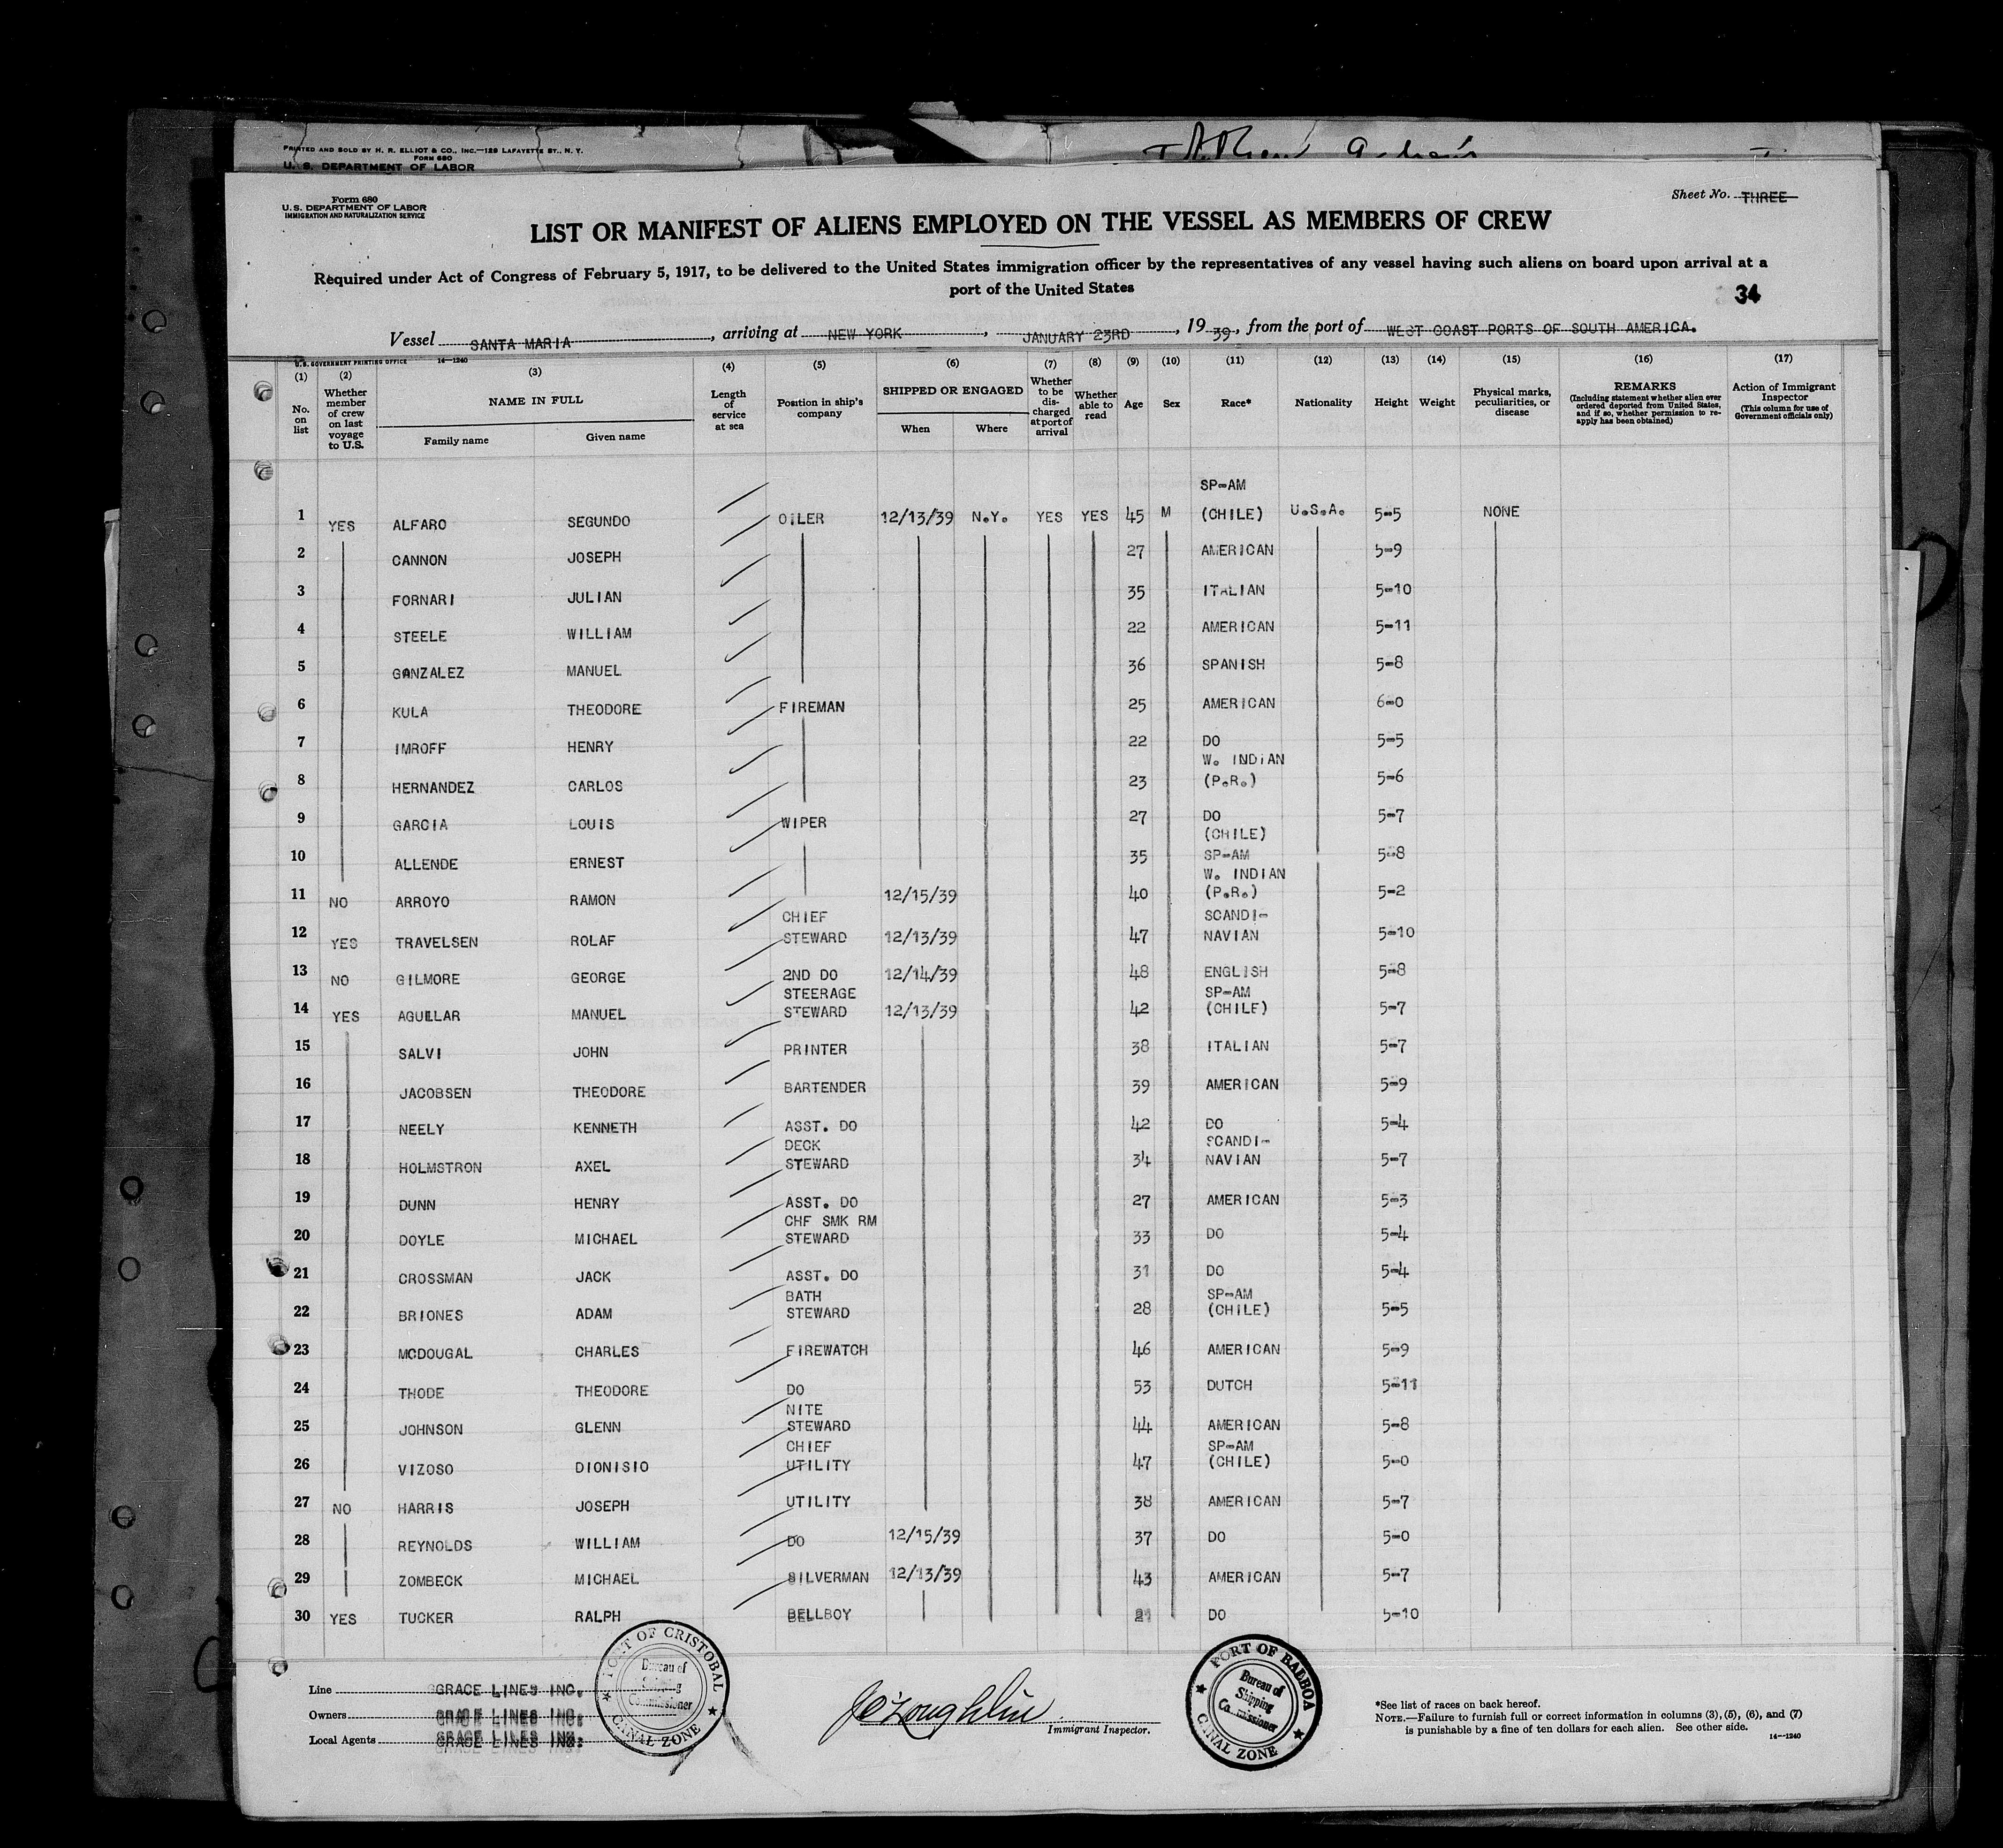 PRINTED AND SOLD BY H. R. ELLIOT & CO., INC.—129 LAFAYETTE ST., N. Y.
FORM 680
U. S. DEPARTMENT OF LABOR
Form 680
U. S. DEPARTMENT OF LABOR
IMMIGRATION AND NATURALIZATION SERVICE
Sheet No. THREE
LIST OR MANIFEST OF ALIENS EMPLOYED ON THE VESSEL AS MEMBERS OF CREW
Required under Act of Congress of February 5, 1917, to be delivered to the United States immigration officer by the representatives of any vessel having such aliens on board upon arrival at a
port of the United States
34
Vessel SANTA MARIA, arriving at NEW YORK, JANUARY 23RD, 1939, from the port of WEST COAST PORTS OF SOUTH AMERICA.
U. S. GOVERNMENT PRINTING OFFICE 14—1240
(1) No. on list
(2) Whether member of crew on last voyage to U.S.
(3) NAME IN FULL Family name Given name
(4) Length of service at sea
(5) Position in ship's company
(6) SHIPPED OR ENGAGED When Where
(7) Whether to be discharged at port of arrival
(8) Whether able to read
(9) Age
(10) Sex
(11) Race*
(12) Nationality
(13) Height
(14) Weight
(15) Physical marks, peculiarities, or disease
(16) REMARKS (Including statement whether alien ever ordered deported from United States, and if so, whether permission to reapply has been obtained)
(17) Action of Immigrant Inspector (This column for use of Government officials only)
1 YES ALFARO SEGUNDO OILER 12/13/39 N.Y. YES YES 45 M SP-AM (CHILE) U.S.A. 5-5 NONE
2 CANNON JOSEPH 27 AMERICAN 5-9
3 FORNARI JULIAN 35 ITALIAN 5-10
4 STEELE WILLIAM 22 AMERICAN 5-11
5 GONZALEZ MANUEL 36 SPANISH 5-8
6 KULA THEODORE FIREMAN 25 AMERICAN 6-0
7 IMROFF HENRY 22 DO 5-5
8 HERNANDEZ CARLOS 23 W. INDIAN (P.R.) 5-6
9 GARCIA LOUIS WIPER 27 DO 5-7
10 ALLENDE ERNEST 35 (CHILE) SP-AM 5-8
11 NO ARROYO RAMON 12/15/39 40 W. INDIAN (P.R.) 5-2
12 YES TRAVELSEN ROLAF CHIEF STEWARD 12/13/39 47 SCANDI-NAVIAN 5-10
13 NO GILMORE GEORGE 2ND DO 12/14/39 48 ENGLISH 5-8
14 YES AGUILLAR MANUEL STEERAGE STEWARD 12/13/39 42 SP-AM (CHILE) 5-7
15 SALVI JOHN PRINTER 38 ITALIAN 5-7
16 JACOBSEN THEODORE BARTENDER 39 AMERICAN 5-9
17 NEELY KENNETH ASST. DO 42 DO 5-4
18 HOLMSTRON AXEL DECK STEWARD 34 SCANDI-NAVIAN 5-7
19 DUNN HENRY ASST. DO 27 AMERICAN 5-3
20 DOYLE MICHAEL CHF SMK RM STEWARD 33 DO 5-4
21 CROSSMAN JACK ASST. DO 31 DO 5-4
22 BRIONES ADAM BATH STEWARD 28 SP-AM (CHILE) 5-5
23 MCDOUGAL CHARLES FIREWATCH 46 AMERICAN 5-9
24 THODE THEODORE DO 53 DUTCH 5-11
25 JOHNSON GLENN NITE STEWARD 44 AMERICAN 5-8
26 VIZOSO DIONISIO CHIEF UTILITY 47 SP-AM (CHILE) 5-0
27 NO HARRIS JOSEPH UTILITY 38 AMERICAN 5-7
28 REYNOLDS WILLIAM DO 12/15/39 37 DO 5-0
29 ZOMBECK MICHAEL SILVERMAN 12/13/39 43 AMERICAN 5-7
30 YES TUCKER RALPH BELLBOY 21 DO 5-10
Line GRACE LINES INC.
Owners GRACE LINES INC.
Local Agents GRACE LINES INC.
PORT OF CRISTOBAL Bureau of Shipping Commissioner CANAL ZONE
Immigrant Inspector.
PORT OF BALBOA Bureau of Shipping Commissioner CANAL ZONE
*See list of races on back hereof.
NOTE.—Failure to furnish full or correct information in columns (3), (5), (6), and (7)
is punishable by a fine of ten dollars for each alien. See other side.
14—1240